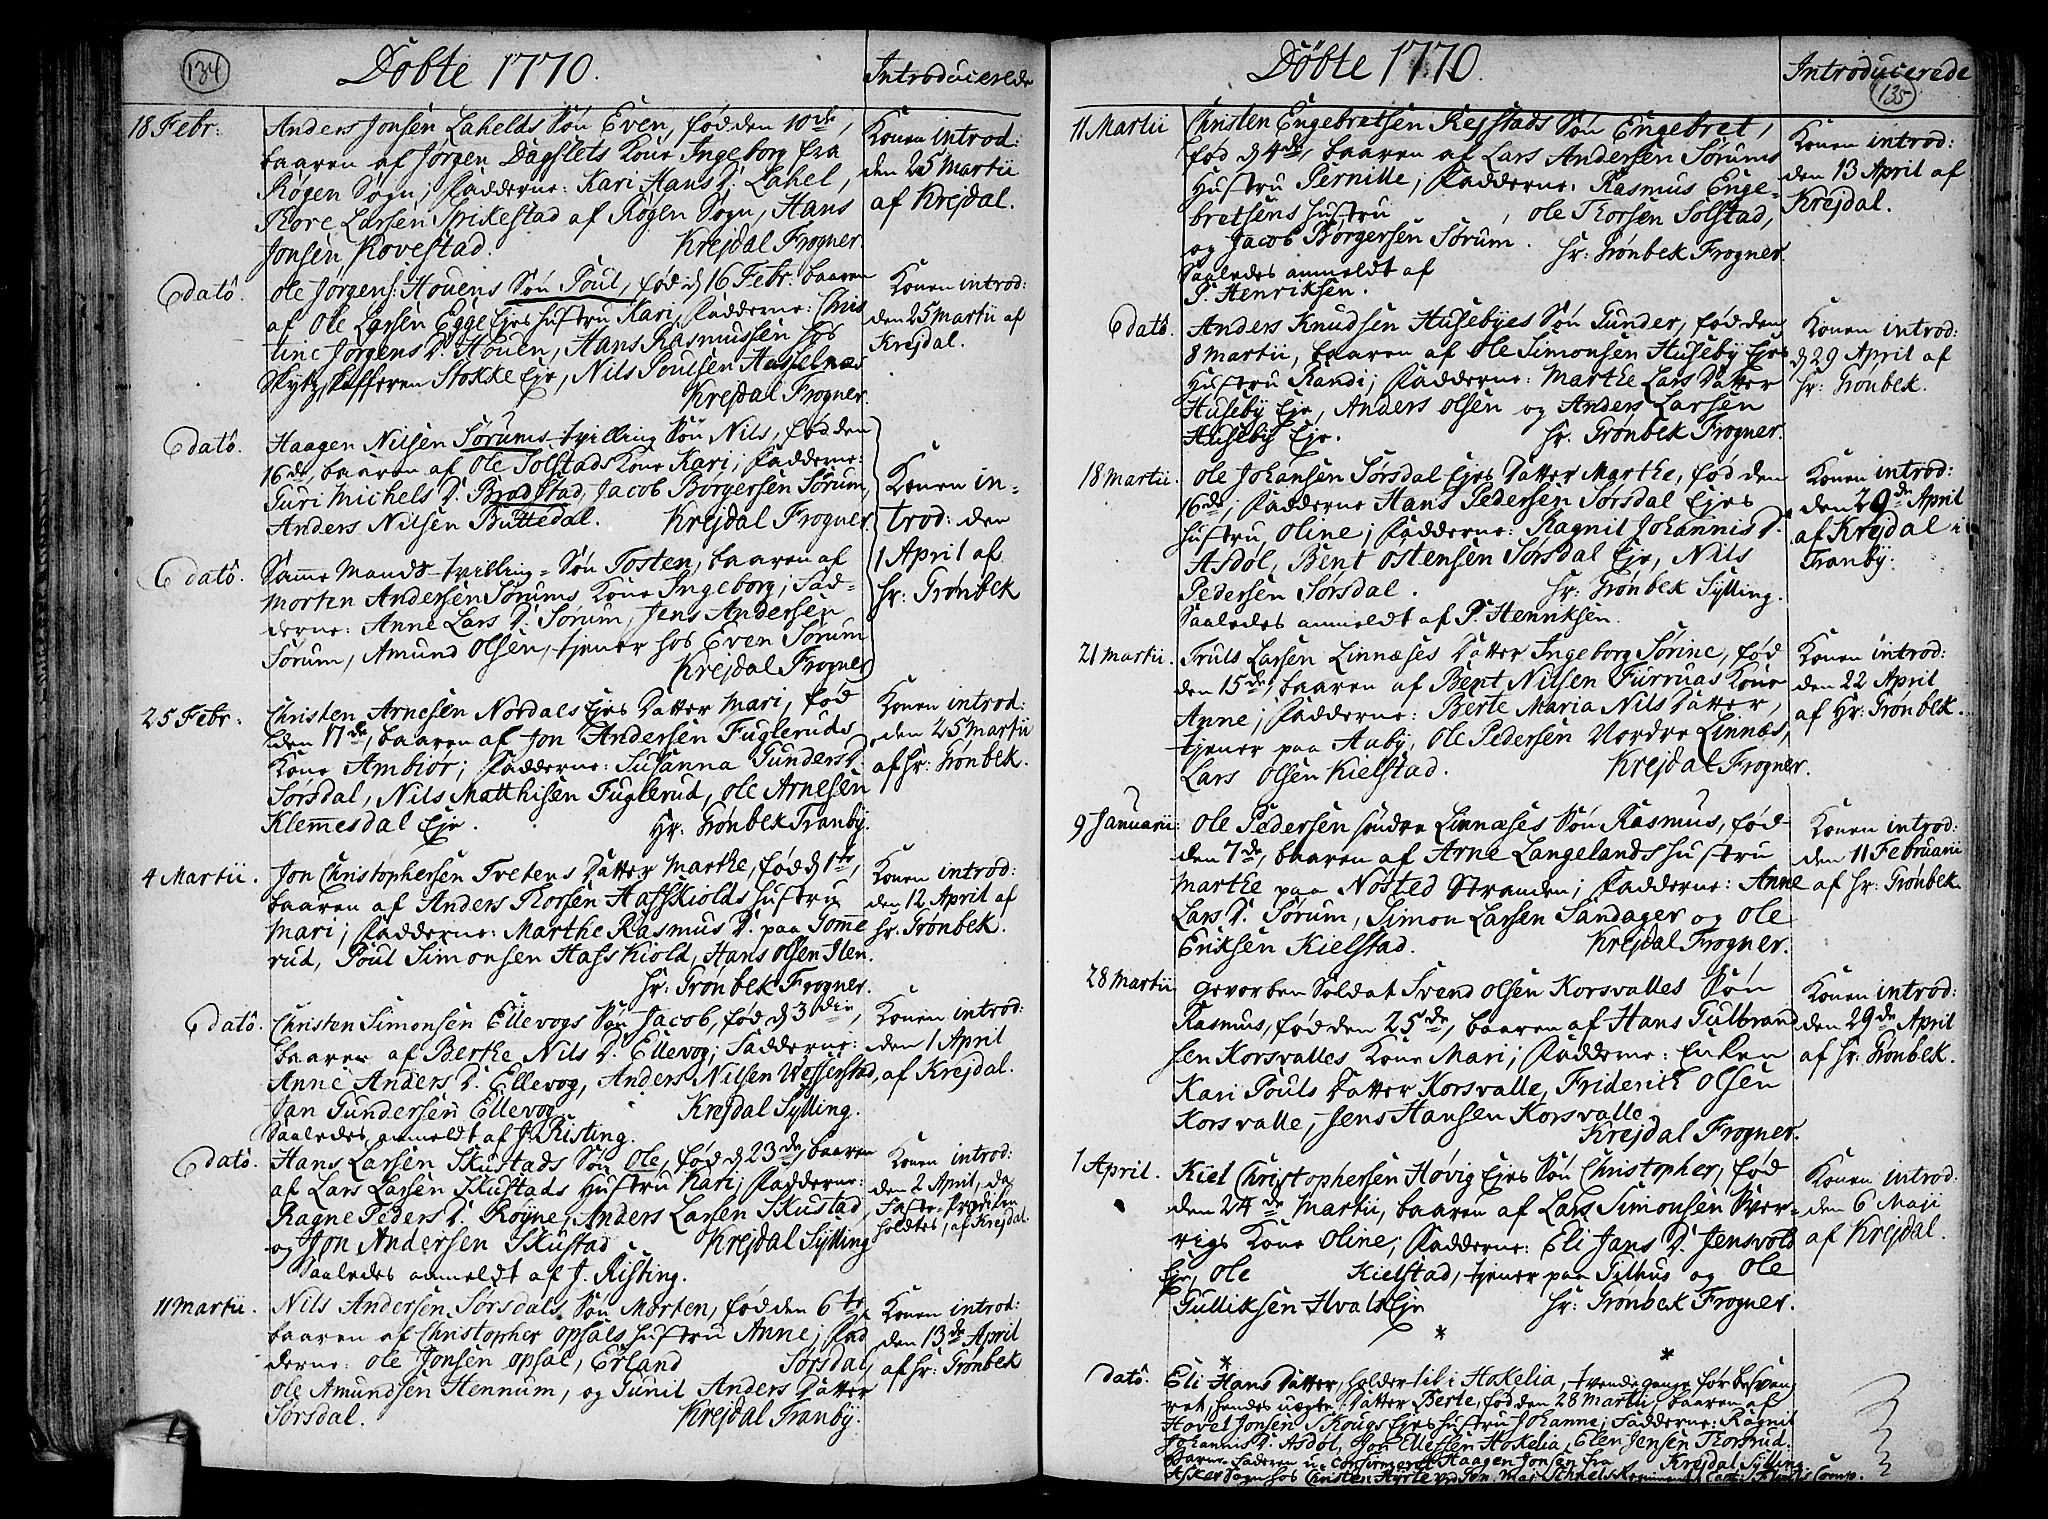 134
Döbte 1770.
Introducerede
18 Febr:
Anders Jonsen Lahelds Søn Even, fød den 10de,
baaren af Jørgen Dagslets Kone Ingeborg fra
Røgen Sogn; Fadderne: Kari Hans D. Lahel,
Tore Larsen Spikestad af Røgen Sogn, Hans
Jonsen Rovestad. Krejdal Frogner.
Konen introd:
den 25 Martii
af Krejdal.
dato.
Ole Jørgens: Houens Søn Poul, fød d 16 Febr. baaren
af Ole Larsen Egge Ejes Hustru Kari; Fadderne: Chris
tine Jørgens D. Houen, Hans Rasmussen hos
Skytz skafferen Stokke Eje, Nils Poulsen Hasselnæs
Krejdal Frogner.
Konen introd:
den 25 Martii af
Krejdal.
dato.
Haagen Nilsen Sørums tvilling Søn Nils, fød den
16de, baaren af Ole Solstads Kone Kari; Fadderne:
Guri Michels D. Bradstad, Jacob Børgersen Sørum,
Anders Nilsen Buttedal. Krejdal Frogner.
Konen in-
trod: den
1 April af
Hr: Grønbek
dato.
Samme Mands tvilling-Søn Tosten, baaren af
Morten Andersen Sørums Kone Ingeborg; Fad-
derne: Anne Lars D. Sørum, Jens Andersen
Sørum, Amund Olsen, tjener hos Even Sørum
Krejdal Frogner
25 Febr:
Christen Arnesen Nordals Ejes Datter Mari, fød
den 17de, baaren af Jon Andersen Fugleruds
Kone Ambiør; Fadderne: Susanna Gunders D.
Sørsdal, Nils Matthisen Fuglerud, Ole Arnesen
Klemmesdal Eje. Hr: Grønbek Tranby.
Konen introd:
den 25 Martii
af Hr: Grønbek.
4 Martii.
Jon Christophersen Tvetens Datter Marthe, fød d 1te,
baaren af Anders Thorsen Hafskiolds Hustru
Mari; Fadderne: Marthe Rasmus D. paa Gomme
rud, Poul Simonsen Hafskiold, Hans Olsen Ilen.
Hr: Grønbek Frogner.
Konen introd:
den 12 April af
Hr: Grønbek.
dato.
Christen Simonsen Ellevogs Søn Jacob, fød d 3die,
baaren af Berthe Nils D. Ellevog; Fadderne:
Anne Anders D. Ellevog, Anders Nilsen Wefferstad,
Jan Gundersen Ellevog. Krejdal Sylling.
Saaledes anmeldt af J. Risting.
Konen introd:
den 1 April
af Krejdal.
dato.
Hans Larsen Skustads Søn Ole, fød d 23de, baaren
af Lars Larsen Skustads Hustru Kari; Fadderne:
Ragne Peders D. Røyne, Anders Larsen Skustad,
og Jon Andersen Skustad. Krejdal Sylling
Saaledes anmeldt af J. Risting.
Konen introd:
den 2 April, da
Faste-Prædiken
holdtes, af Krejdal.
11 Martii.
Nils Andersen Sørsdals Søn Morten, fød den 6te,
baaren af Christopher Opsals Hustru Anne; Fad
derne: Ole Jonsen Opsal, Erland Sørsdal,
Ole Amundsen Hennum, og Gunil Anders Datter
Sørsdal. Krejdal Tranby.
Konen introd:
den 13de April
af Hr: Grønbek
Döbte 1770.
Introducerede
135
11 Martii
Christen Engebretsen Rejstads Søn Engebret,
fød d 4de, baaren af Lars Andersen Sørums
Hustru Pernille; Fadderne: Rasmus Enge-
bretsens Hustru , Ole Thorsen Solstad,
og Jacob Børgersen Sørum. Hr: Grønbek Frogner.
Saaledes anmeldt af
P. Henriksen.
Konen introd:
den 13 April af
Krejdal.
dato.
Anders Knudsen Husebyes Søn Gunder, fød den
8 Martii, baaren af Ole Simonsen Huseby Ejes
Hustru Randi; Fadderne: Marthe Lars Datter
Huseby Eje, Anders Olsen og Anders Larsen
Huseby Eje. Hr. Grønbek Frogner.
Konen introd:
d 29 April af
Hr: Grønbek.
18 Martii.
Ole Johansen Sørsdal Ejes Datter Marthe, fød den
16de; Fadderne Hans Pedersen Sørsdal Ejes
Hustru, Oline; Fadderne: Ragnil Johannis D.
Asdøl, Bent Ostensen Sørsdal Eje, Nils
Pedersen Sørsdal. Hr: Grønbek Sylling.
Saaledes anmeldt af P. Henriksen.
Konen introd:
den 29de April
af Krejdal i
Tranby.
21 Martii.
Truls Larsen Linnæses Datter Ingeborg Sørine, fød
den 15de, baaren af Bent Nilsen Furruas Kone
Anne; Fadderne: Berte Maria Nils Datter,
tjener paa Auby, Ole Pedersen Nordre Linnæs,
Lars Olsen Kielstad. Krejdal Frogner.
Konen introd:
den 22 April
af Hr: Grønbek.
9 Januarii:
Ole Pedersen søndre Linnæses Søn Rasmus, fød
den 7de, baaren af Arne Langelands Hustru
Marthe paa Nosted Stranden; Fadderne: Anne
Lars D. Sørum, Simon Larsen Sandager og Ole
Eriksen Kielstad. Krejdal Frogner.
Konen introd:
den 11 Februarii
af Hr: Grønbek.
28 Martii
Gevorben Soldat Svend Olsen Korsvalles Søn
Rasmus, fød den 25de, baaren af Hans Gulbrand
sen Korsvalles Kone Mari; Fadderne: Enken
Kari Pouls Datter Korsvalle, Friderich Olsen
Korsvalle, Jens Hansen Korsvalle
Krejdal Frogner.
Konen introd:
den 29de April
af Hr: Grønbek.
1 April.
Kiel Christophersen Høvig Ejes Søn Christopher, fød
den 24de Martii, baaren af Lars Simonsen Sver-
rigs Kone Oline; Fadderne: Eli Jans D. Jensvold
Eje, Ole Kielstad, tjener paa Gilhus og Ole
Gulliksen Hvals Eje Hr: Grønbek Frogner.
Konen introd.
den 6 Maji
af Krejdal.
*
* *
dato.
Eli Hans Datter, holder til i Hokelia, tvende gange før besvang
ret, hendes uægte Datter Berte, fød den 28 Martii, baaren af
Hovel Jonsen Skougs Ejes Hustru Johanne; Fadderne: Ragnil
Johannis D. Asdøl, Jon Ellefsen Hokelia, Elen Jensen Thorsrud:
Barne-Faderen u-confirmeret Haagen Jonsen fra Krejdal Sylling.
Asker Sogn hos Christen Hyrte